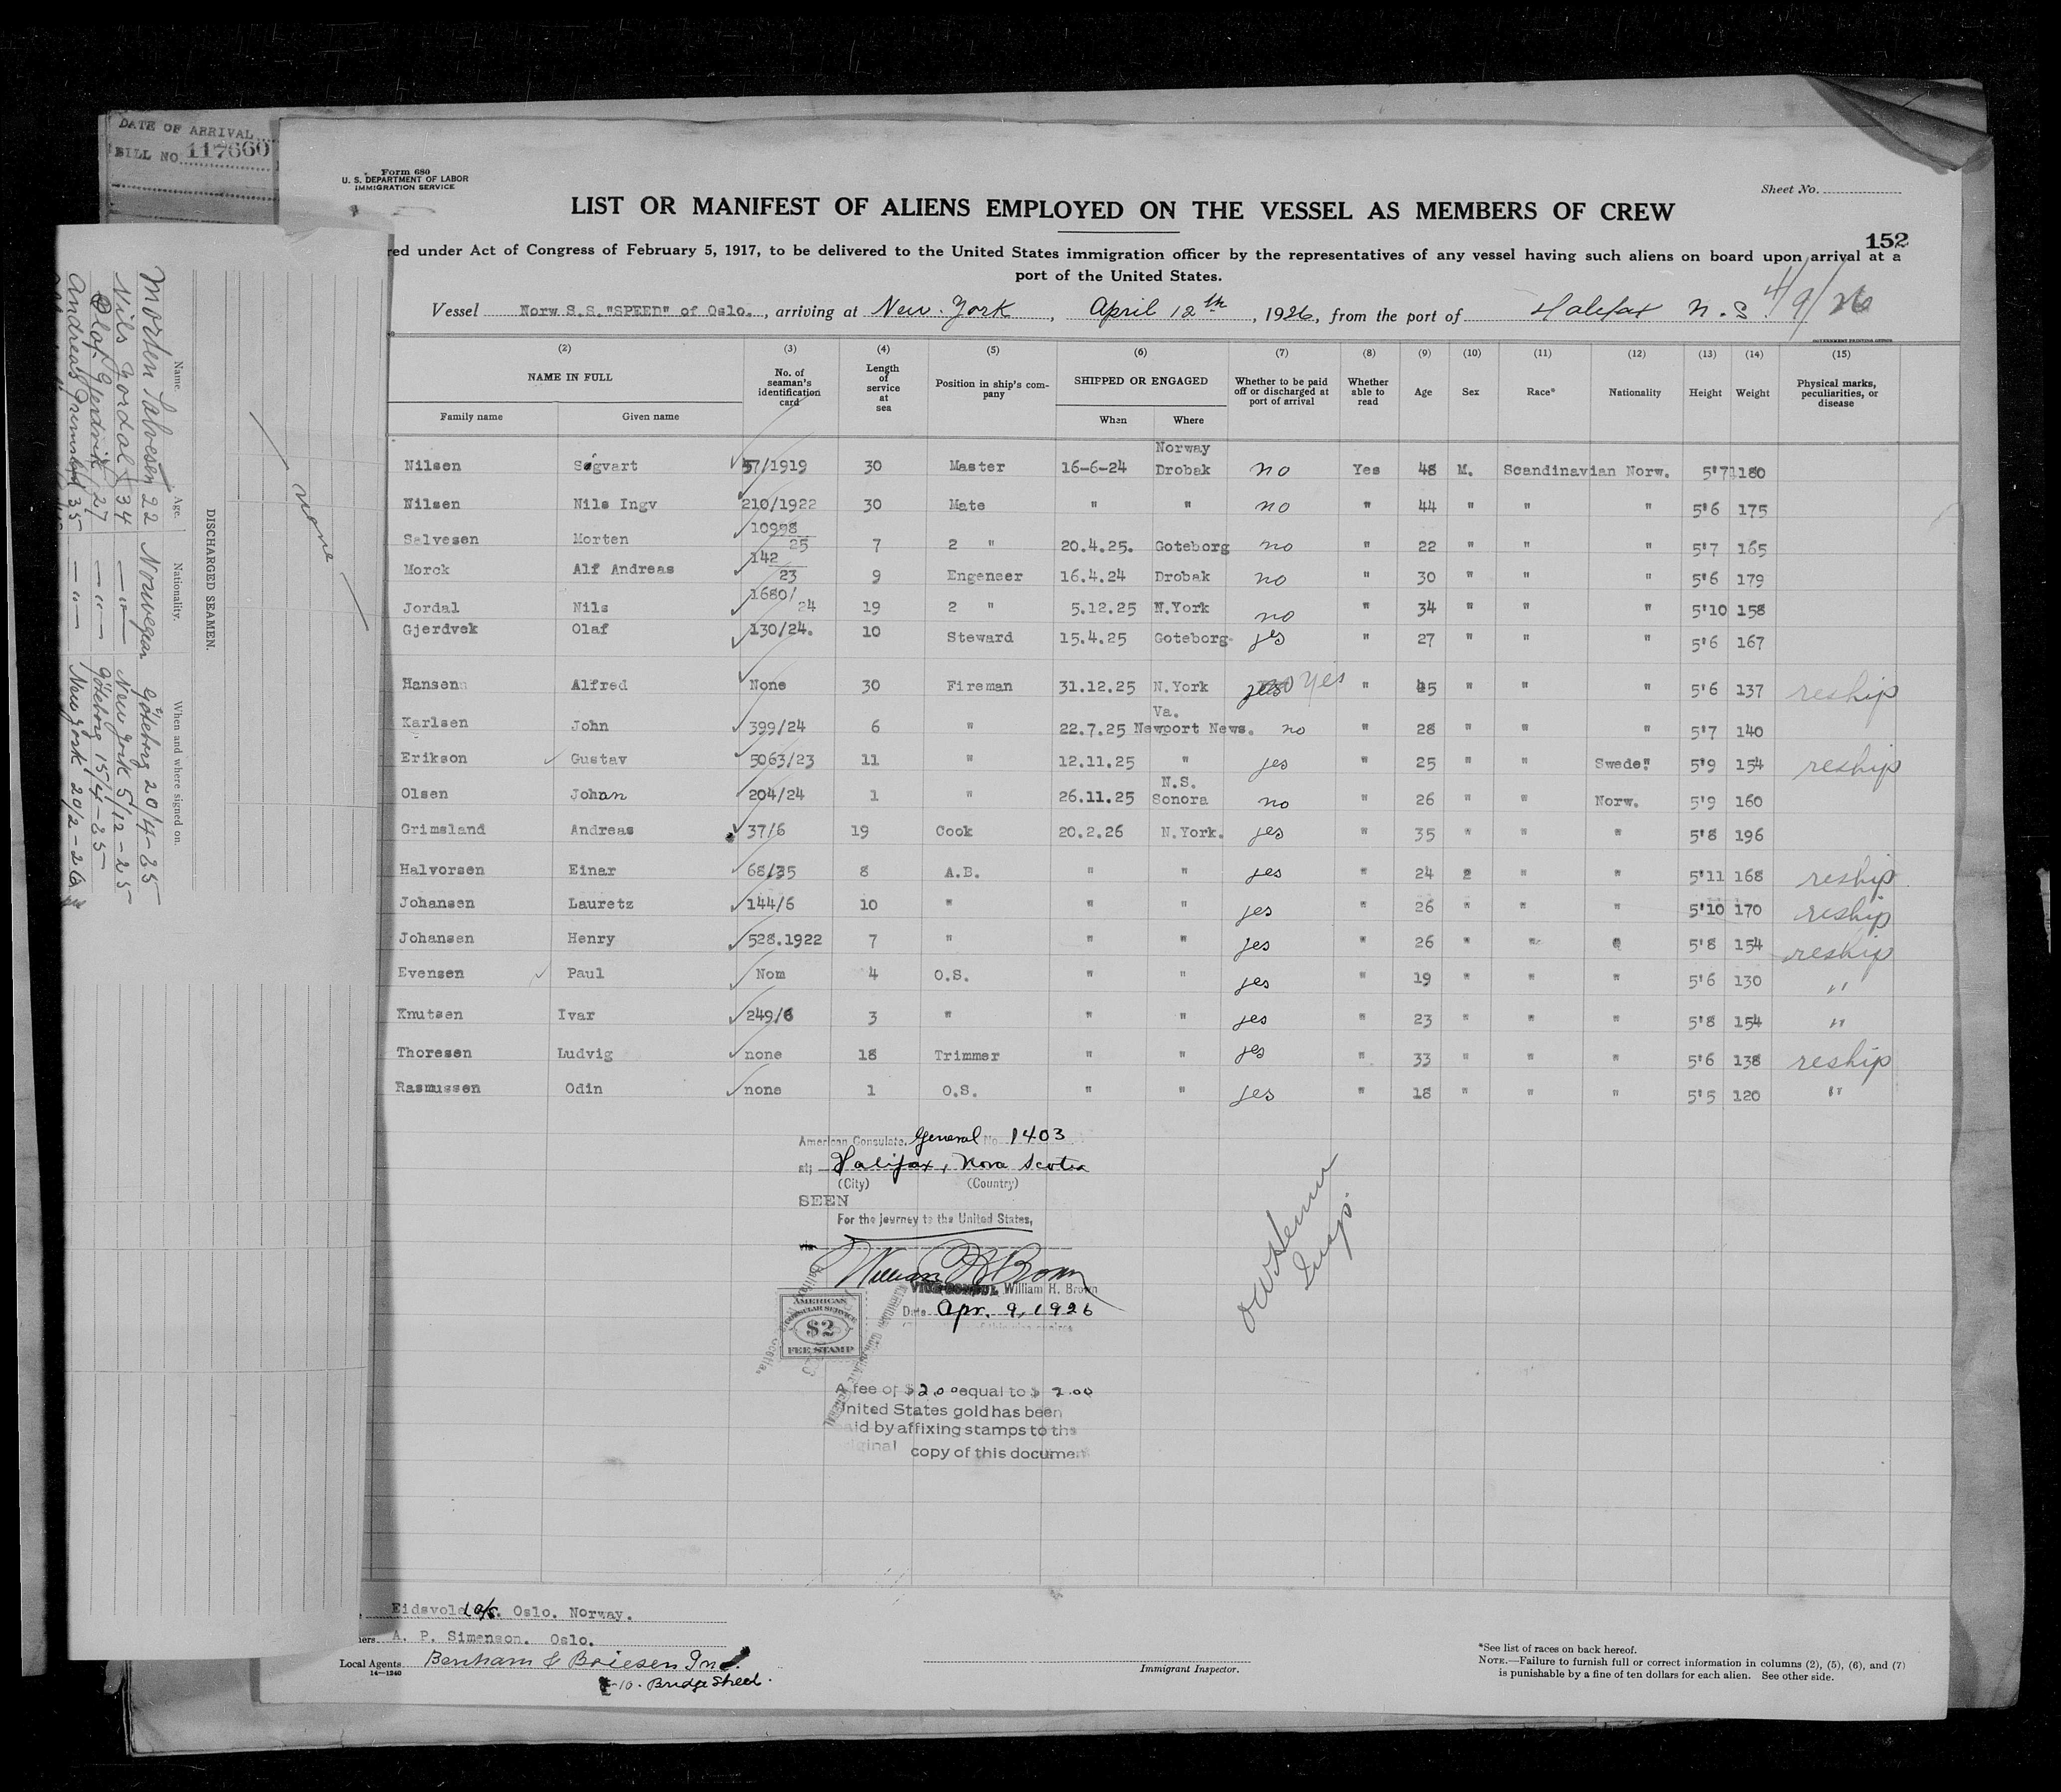 DATE OF ARRIVAL
BILL NO. 117660
Form 680
U. S. DEPARTMENT OF LABOR
IMMIGRATION SERVICE
Sheet No.
LIST OR MANIFEST OF ALIENS EMPLOYED ON THE VESSEL AS MEMBERS OF CREW
152
red under Act of Congress of February 5, 1917, to be delivered to the United States immigration officer by the representatives of any vessel having such aliens on board upon arrival at a
port of the United States.
Vessel Norw S.S."SPEED" of Oslo. , arriving at New York , April 12th , 1926, from the port of Halifax N.S. 4/9/26
GOVERNMENT PRINTING OFFICE
(2) (3) (4) (5) (6) (7) (8) (9) (10) (11) (12) (13) (14) (15)
NAME IN FULL No. of seaman's identification card Length of service at sea Position in ship's company SHIPPED OR ENGAGED Whether to be paid off or discharged at port of arrival Whether able to read Age Sex Race* Nationality Height Weight Physical marks, peculiarities, or disease
Family name Given name When Where
Norway
Nilsen Sigvart 57/1919 30 Master 16-6-24 Drobak no Yes 48 M. Scandinavian Norw. 5'7 180
Nilsen Nils Ingv 210/1922 30 Mate " " no " 44 " " " 5'6 175
Salvesen Morten 10998/25 7 2 " 20.4.25. Goteborg no " 22 " " " 5'7 165
Morck Alf Andreas 142/23 9 Engeneer 16.4.24 Drobak no " 30 " " " 5'6 179
Jordal Nils 1680/24 19 2 " 5.12.25 N.York no " 34 " " " 5'10 158
Gjerdvek Olaf 130/24. 10 Steward 15.4.25 Goteborg yes " 27 " " " 5'6 167
Hansen Alfred None 30 Fireman 31.12.25 N.York yes " 45 " " " 5'6 137 reship
Va.
Karlsen John 399/24 6 " 22.7.25 Newport News. no " 28 " " " 5'7 140
Erikson Gustav 5063/23 11 " 12.11.25 " yes " 25 " " Swede" 5'9 154 reship
N.S.
Olsen Johan 204/24 1 " 26.11.25 Sonora no " 26 " " Norw. 5'9 160
Grimsland Andreas 37/6 19 Cook 20.2.26 N.York. yes " 35 " " " 5'8 196
Halvorsen Einar 68/25 8 A.B. " " yes " 24 " " " 5'11 168 reship
Johansen Lauretz 144/6 10 " " " yes " 26 " " " 5'10 170 reship
Johansen Henry 528.1922 7 " " " yes " 26 " " " 5'8 154 reship
Evensen Paul Nom 4 O.S. " " yes " 19 " " " 5'6 130 "
Knutsen Ivar 249/6 3 " " " yes " 23 " " " 5'8 154 "
Thoresen Ludvig none 18 Trimmer " " yes " 33 " " " 5'6 138 reship
Rasmussen Odin none 1 O.S. " " yes " 18 " " " 5'5 120 "
American Consulate. General No 1403
at; Halifax, Nova Scotia
(City) (Country)
SEEN
For the journey to the United States,
via
William H Brown
VICE CONSUL William H. Brown
Date Apr. 9, 1926
AMERICAN
CONSULAR SERVICE
$2
FEE STAMP
A fee of $ 2.00 equal to $ 2.00
United States gold has been
paid by affixing stamps to the
original copy of this document
Insp.
Eidsvold a/s. Oslo. Norway.
A. P. Simenson. Oslo.
Local Agents Benham & Boiesen Inc.
14-1240
10. Bridge Street.
Immigrant Inspector.
*See list of races on back hereof.
NOTE.—Failure to furnish full or correct information in columns (2), (5), (6), and (7)
is punishable by a fine of ten dollars for each alien. See other side.
none
DISCHARGED SEAMEN.
Name. Age. Nationality. When and where signed on.
Morten Salvesen 22 Norwegian Göteborg 20/4-25
Nils Jordal 34 — " — New York 5/12-25
Olaf Gjerdvik 27 — " — Göteborg 15/4-25
Andreas Grimsland 35 — " — New York 20/2-26